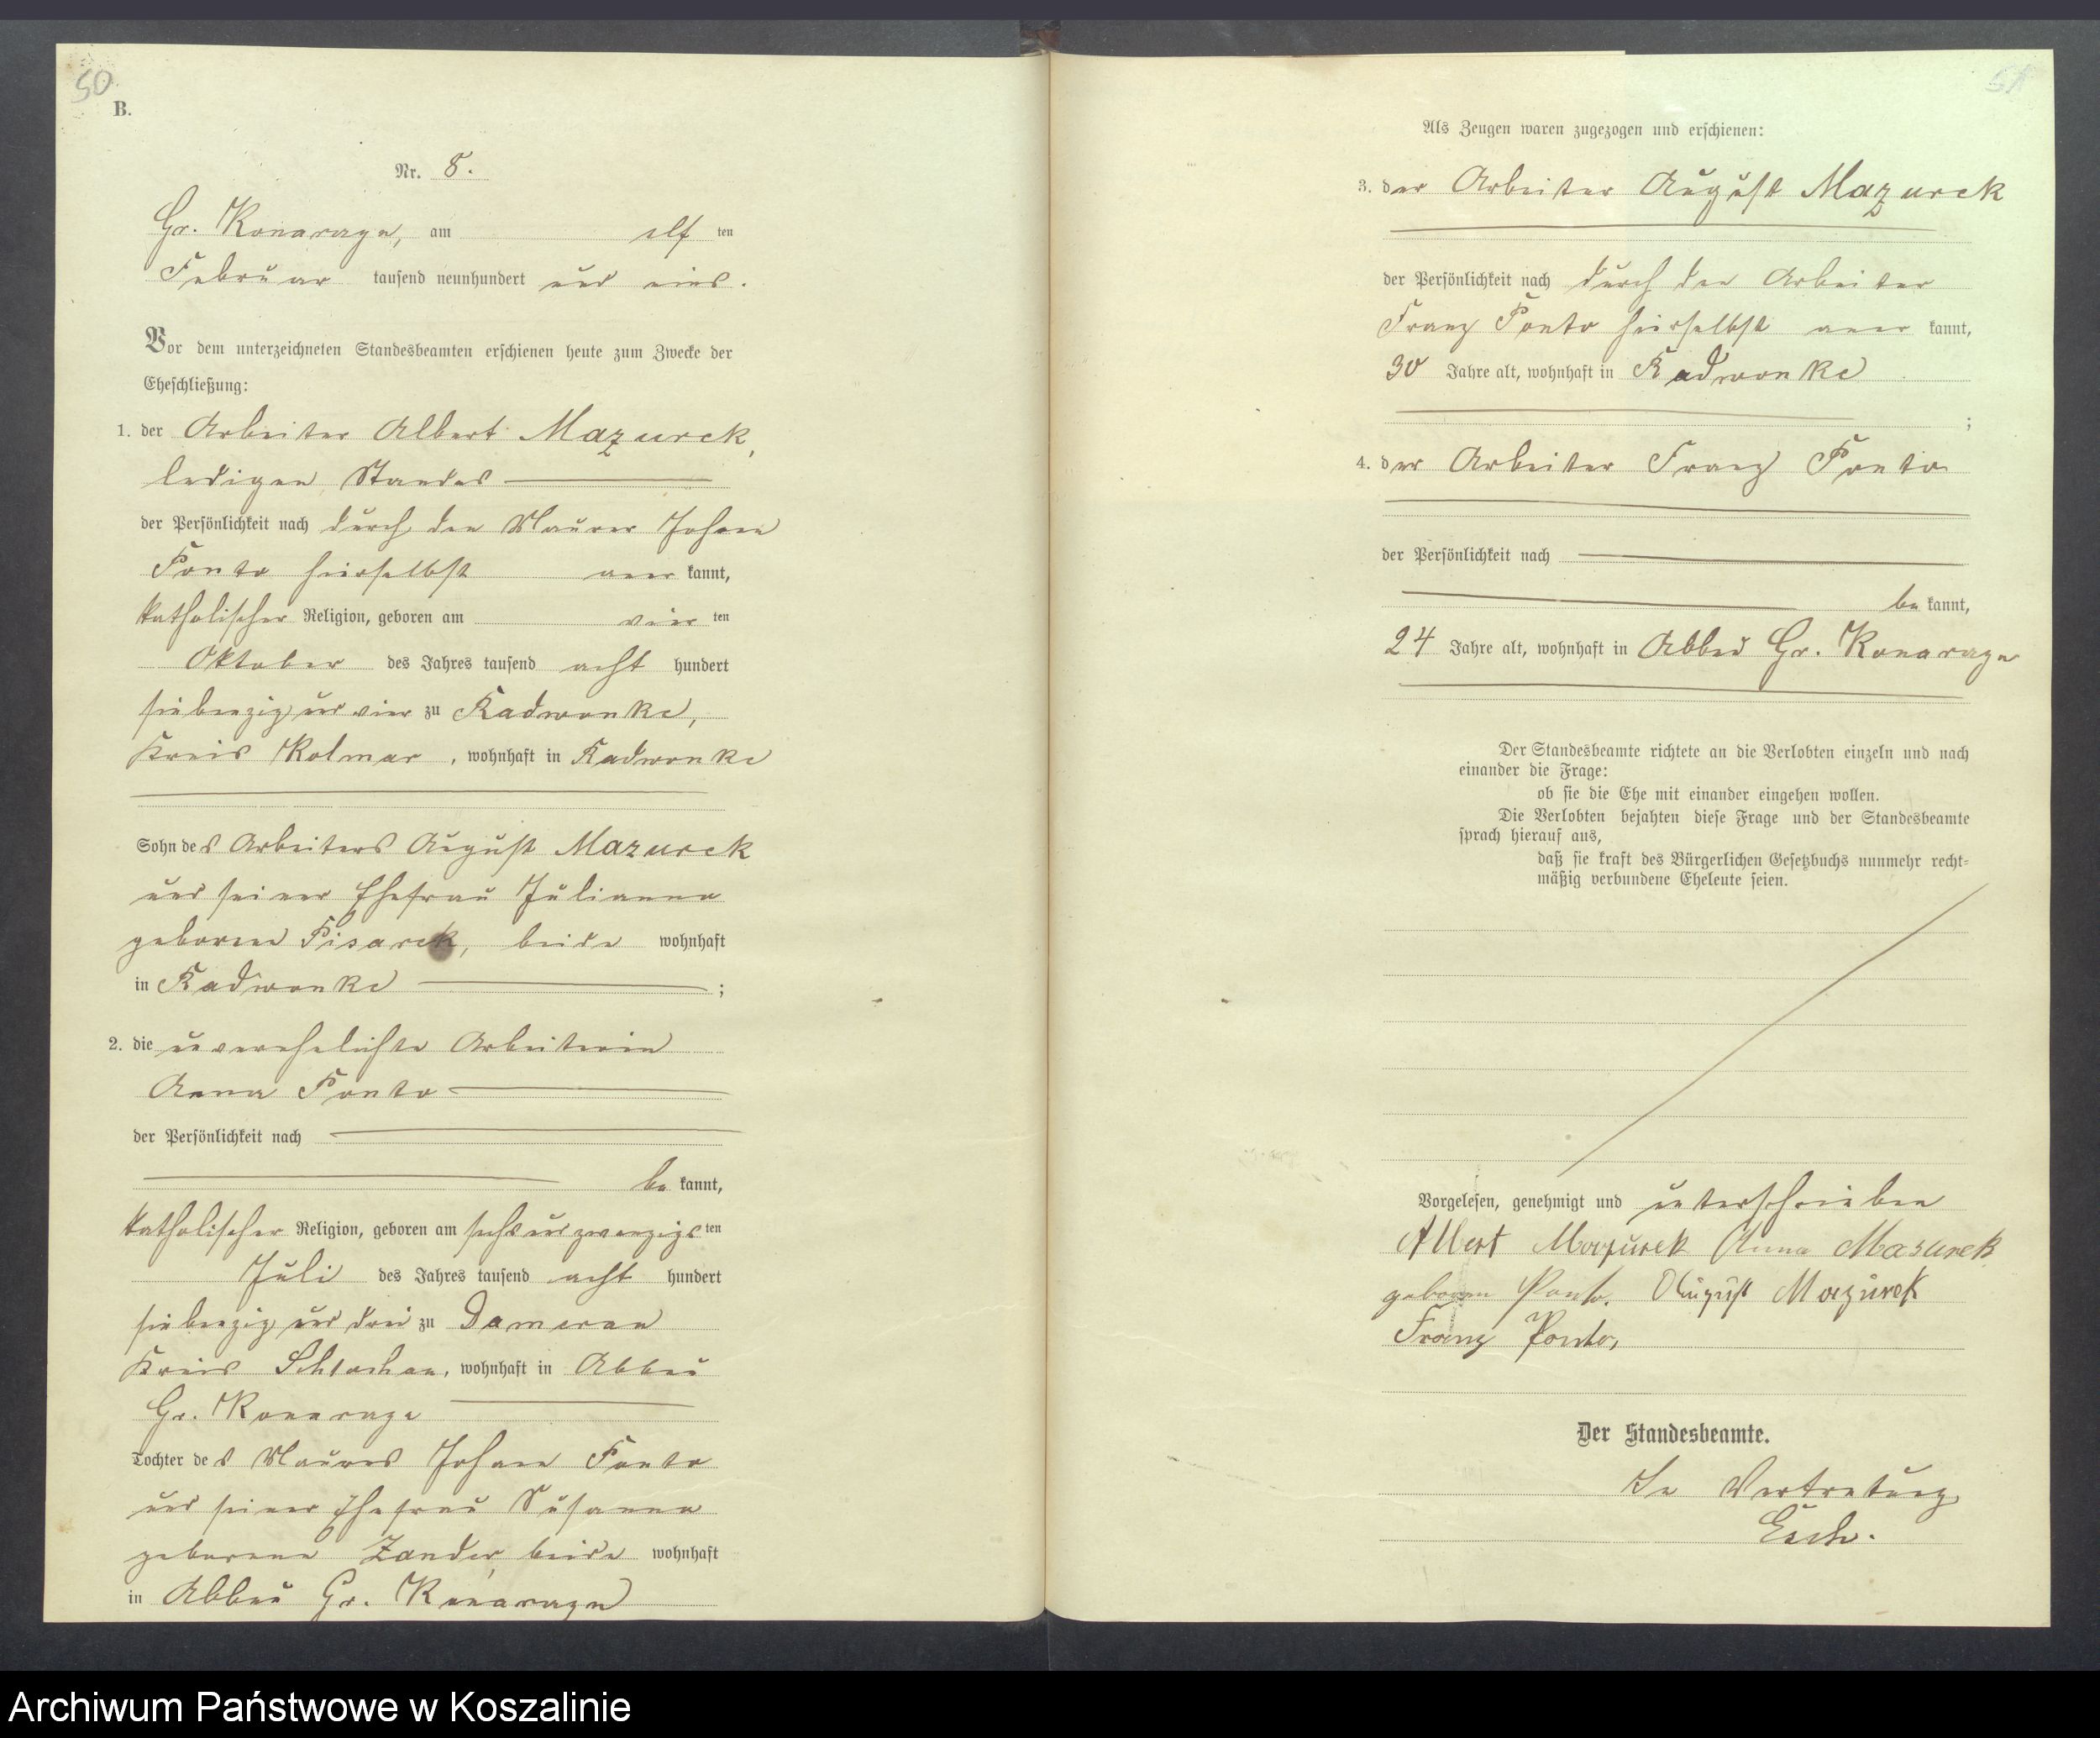 50
B.
Nr. 8.
Gr. Konarage, am elf ten
Februar tausend neunhundert und eins.
Vor dem unterzeichneten Standesbeamten erschienen heute zum Zwecke der
Eheschließung:
1. der Arbeiter Albert Mazurek,
ledigen Standes
der Persönlichkeit nach durch den Maurer Johann
Ponto hierselbst aner kannt,
katholischer Religion, geboren am vier ten
Oktober des Jahres tausend acht hundert
siebenzig und vier zu Radwonke,
Kreis Kolmar, wohnhaft in Radwonke
Sohn des Arbeiters August Mazurek
und seiner Ehefrau Julianna
geborene Pisarek, beide wohnhaft
in Radwonke ;
2. die unverehelichte Arbeiterin
Anna Ponto
der Persönlichkeit nach
be kannt,
katholischer Religion, geboren am sechsundzwanzigs ten
Juli des Jahres tausend acht hundert
siebenzig und drei zu Damerau
Kreis Schlochau, wohnhaft in Abbau
Gr. Konarage
Tochter des Maurers Johann Ponto
und seiner Ehefrau Susanna
geborene Zander, beide wohnhaft
in Abbau Gr. Konarage
51
Als Zeugen waren zugezogen und erschienen:
3. der Arbeiter August Mazurek
der Persönlichkeit nach durch den Arbeiter
Franz Ponto hierselbst aner kannt,
30 Jahre alt, wohnhaft in Radwonke
;
4. der Arbeiter Franz Ponto
der Persönlichkeit nach
be kannt,
24 Jahre alt, wohnhaft in Abbau Gr. Konarage
Der Standesbeamte richtete an die Verlobten einzeln und nach
einander die Frage:
ob sie die Ehe mit einander eingehen wollen.
Die Verlobten bejahten diese Frage und der Standesbeamte
sprach hierauf aus,
daß sie kraft des Bürgerlichen Gesetzbuchs nunmehr recht-
mäßig verbundene Eheleute seien.
Vorgelesen, genehmigt und unterschrieben
Albert Mazurek Anna Masurek
geboren Ponto. August Mazurek
Franz Ponto,
Der Standesbeamte.
In Vertretung
Esch.
Archiwum Państwowe w Koszalinie